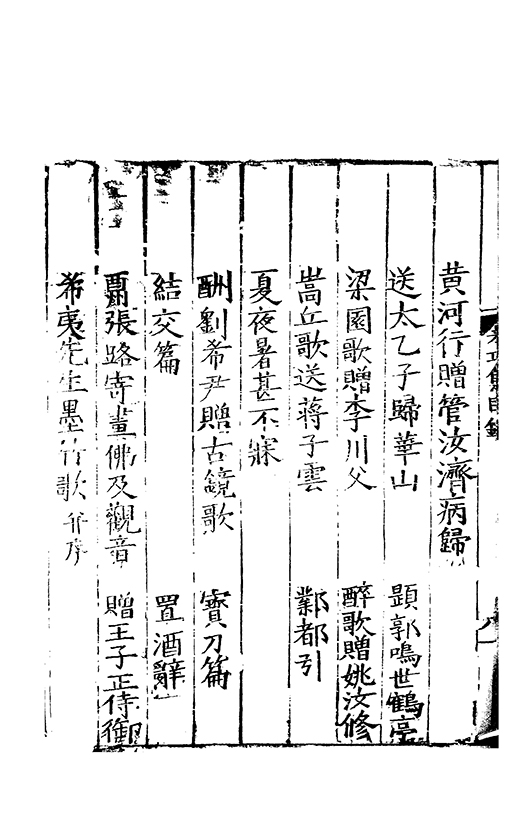 黃河行贈管汝濟病歸
送太乙子歸華山　題郭鳴世鶴亭
梁園歌贈李川父　醉歌贈姚汝修
嵩丘歌送蔣子雲　鄴都引
夏夜暑甚不寐
酬劉希尹贈古鏡歌　寶刀篇
結交篇　置酒辭
張路寄畫佛及觀音　贈王子正侍御
希夷先生墨竹歌并序